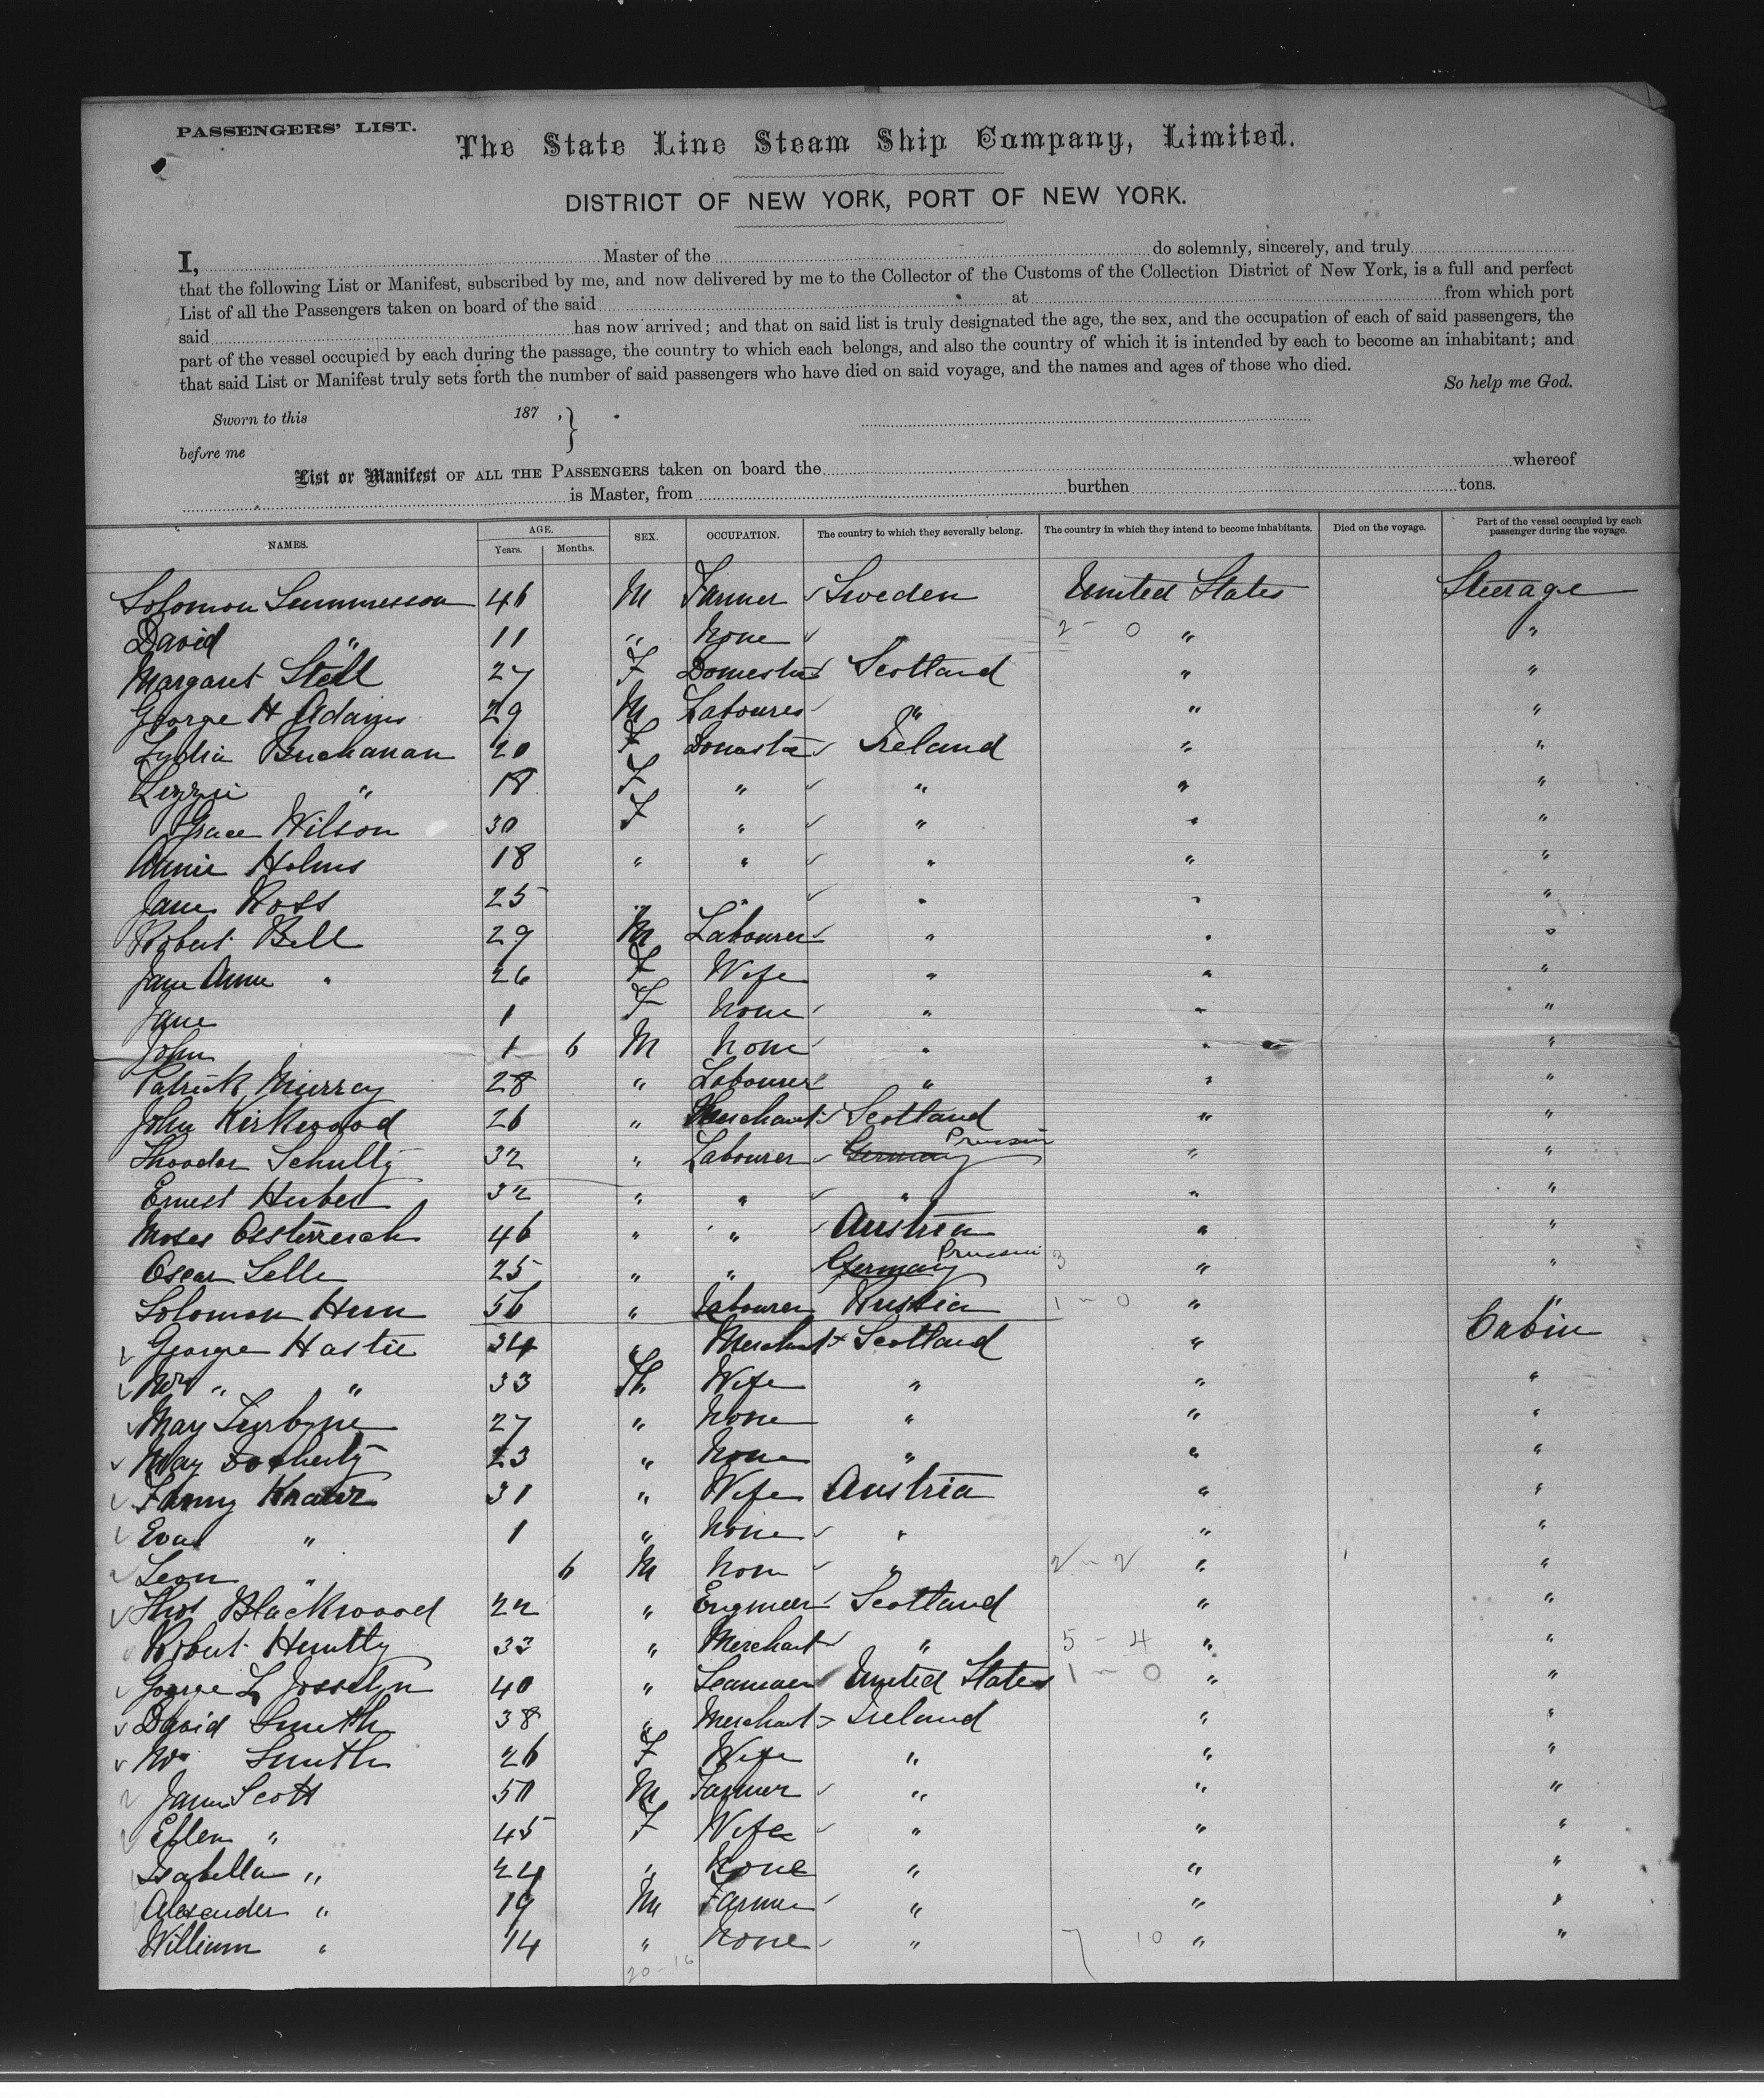 PASSENGERS' LIST.
The State Line Steam Ship Company, Limited.
DISTRICT OF NEW YORK, PORT OF NEW YORK.
I, Master of the do solemnly, sincerely, and truly
that the following List or Manifest, subscribed by me, and now delivered by me to the Collector of the Customs of the Collection District of New York, is a full and perfect
List of all the Passengers taken on board of the said at from which port
said has now arrived; and that on said list is truly designated the age, the sex, and the occupation of each of said passengers, the
part of the vessel occupied by each during the passage, the country to which each belongs, and also the country of which it is intended by each to become an inhabitant; and
that said List or Manifest truly sets forth the number of said passengers who have died on said voyage, and the names and ages of those who died.
So help me God.
Sworn to this 187 ,
before me
List or Manifest OF ALL THE PASSENGERS taken on board the whereof
is Master, from burthen tons.
NAMES. AGE. Years. Months. SEX. OCCUPATION. The country to which they severally belong. The country in which they intend to become inhabitants. Died on the voyage. Part of the vessel occupied by each passenger during the voyage.
Solomon 46 M Farmer Sweden United States Steerage
David " 11 " None 2 - 0 " "
Margaret Stell 27 F Domestic Scotland " "
George H Adams 29 M Labourer " " "
Lydia Buchanan 20 F Domestic Ireland " "
Lizzie " 18 F " " " "
Grace Wilson 30 F " " " "
Annie Holms 18 " " " " "
Jane Ross 25 " " " " "
Robert Bell 29 M Labourer " " "
Jane Anne " 26 F Wife " " "
Jane 1 F None " " "
John 1 6 M None " " "
Patrick Murray 28 " Labourer " " "
John Kirkwood 26 " Merchant Scotland " "
Theodor Schultz 32 " Labourer Germany Prussia " "
Ernest Herber 32 " " " " "
Moses Ossterreich 46 " " Austria " "
Oscar Selle 25 " " Germany Prussia 3 " "
Solomon Hern 56 " Labourer Russia 1 - 0 " "
George Hastie 34 " Merchant Scotland " Cabin
Mrs " " 33 F Wife " " "
May 27 " None " " "
May Docherty 23 " None " " "
Fanny 31 " Wife Austria " "
Eva " 1 " None " " "
Leon " 6 M None " 2 - 2 " "
Thos Blackwood 22 " Engineer Scotland " "
Robert Huntly 33 " Merchant " 5 - 4 " "
George L Josselyn 40 " Seaman United States 1 - 0 " "
David Smith 38 " Merchant Ireland " "
Mrs Smith 26 F Wife " " "
James Scott 50 M Farmer " " "
Ellen " 45 F Wife " " "
Isabella " 24 " None " " "
Alexander " 19 M Farmer " " "
William " 14 " None " 7 10 " "
20 - 16